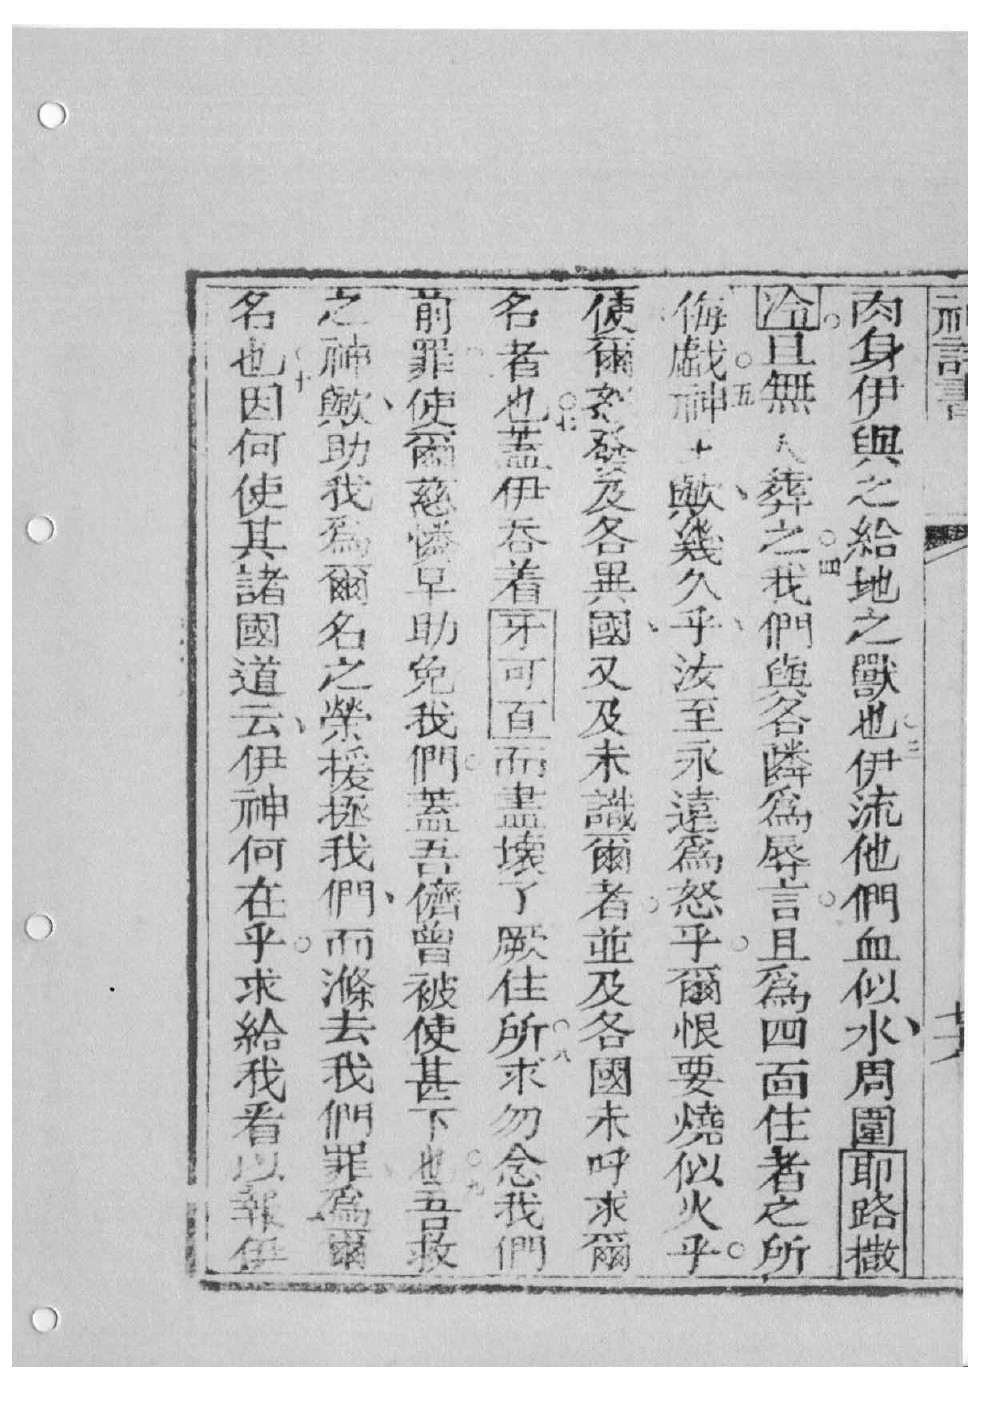 神詩書
肉身伊與之給地之獸也○三伊流他們血似水、周圍耶路撒
冷○且無人葬之○四我們與各隣爲辱言○且爲四面住者之所
侮戲○五神主歟、幾久乎、汝至永遠爲怒乎○爾恨要燒似火乎○
使爾怒發及各異國、又及未識爾者○並及各國未呼求爾
名者也○七蓋伊吞着牙可百而盡壞了厥住所○八求勿念我們
前罪○使爾慈憐早助免我們○蓋吾儕曾被使甚下也○九吾救
之神歟、助我爲爾名之榮援拯我們、而滌去我們罪爲爾
名也○十因何使其諸國道云、伊神何在乎○求給我看以報伊